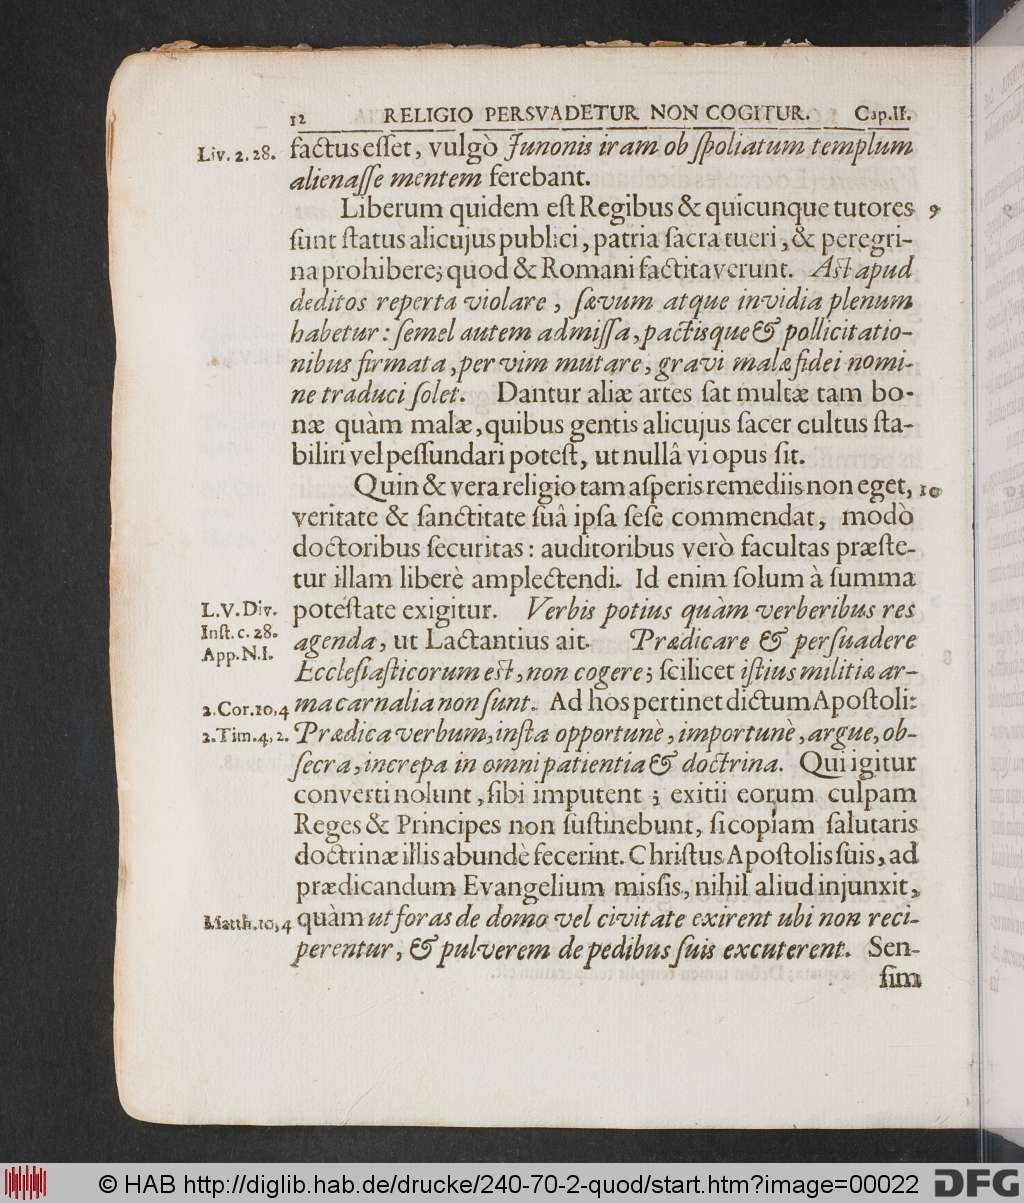 12 RELIGIO PERSVADETUR NON COGITUR. Cap.II.
Liv. 2. 28. factus eſſet, vulgò Junonis iram ob ſpoliatum templum
alienaſſe mentem ferebant.
Liberum quidem eſt Regibus & quicunque tutores 9
ſunt ſtatus alicujus publici, patria ſacra tueri, & peregri-
na prohibere; quod & Romani factitaverunt. Aſt apud
deditos reperta violare, ſævum atque invidia plenum
habetur: ſemel autem admiſſa, pactisque & pollicitatio-
nibus firmata, per vim mutare, gravi malæ fidei nomi-
ne traduci ſolet. Dantur aliæ artes ſat multæ tam bo-
næ quàm malæ, quibus gentis alicujus ſacer cultus ſta-
biliri vel peſſundari poteſt, ut nullâ vi opus ſit.
Quin & vera religio tam aſperis remediis non eget, 10
veritate & ſanctitate ſuâ ipſa ſeſe commendat, modò
doctoribus ſecuritas: auditoribus verò facultas præſte-
tur illam liberè amplectendi. Id enim ſolum à ſumma
L.V. Div. poteſtate exigitur. Verbis potius quàm verberibus res
Inſt. c. 28. agenda, ut Lactantius ait. Prædicare & perſuadere
App. N.I.
Eccleſiaſticorum eſt, non cogere; ſcilicet iſtius militiæ ar-
2.Cor.10,4 ma carnalia non ſunt. Ad hos pertinet dictum Apoſtoli:
2.Tim.4,2. Prædica verbum, inſta opportunè, importunè, argue, ob-
ſecra, increpa in omni patientia & doctrina. Qui igitur
converti nolunt, ſibi imputent; exitii eorum culpam
Reges & Principes non ſuſtinebunt, ſi copiam ſalutaris
doctrinæ illis abundè fecerint. Chriſtus Apoſtolis ſuis, ad
prædicandum Evangelium miſſis, nihil aliud injunxit,
Matth.10,4 quàm ut foras de domo vel civitate exirent ubi non reci-
perentur, & pulverem de pedibus ſuis excuterent. Sen-
ſim
© HAB http://diglib.hab.de/drucke/240-70-2-quod/start.htm?image=00022 DFG